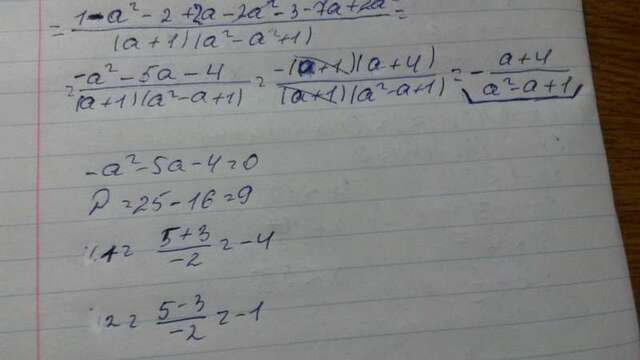 = 1-a² - 2 + 2a - 2a² - 3 - 7a + 2a² / (a+1)(a²-a²+1) =
= -a² - 5a - 4 / (a+1)(a²-a+1) = -(a+1)(a+4) / (a+1)(a²-a+1) = - a+4 / a²-a+1
-a²-5a-4=0
D=25-16=9
1= 5+3 / -2 = -4
2= 5-3 / -2 = -1